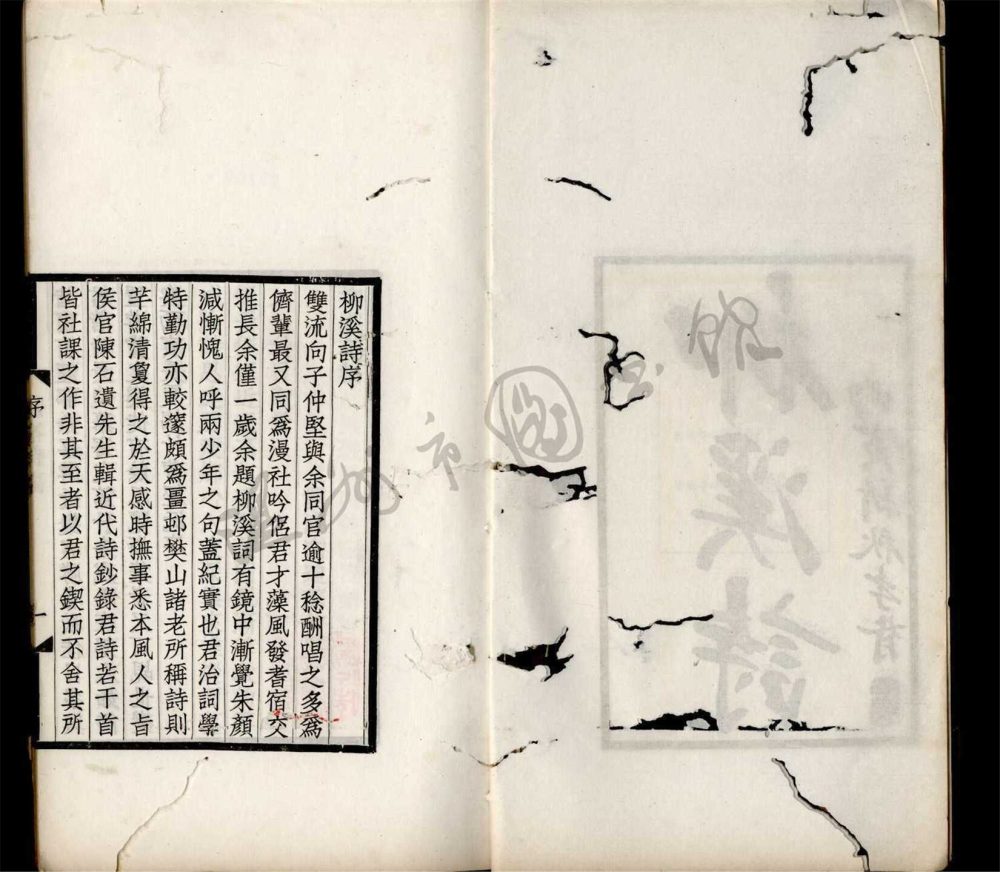 柳溪詩序
雙流向子仲堅與余同官逾十稔酬唱之多爲
儕輩最又同爲漫社吟侣君才藻風發耆宿交
推長余僅一歲余題柳溪詞有鏡中漸覺朱顏
減慚愧人呼兩少年之句蓋紀實也君治詞學
特勤功亦較邃頗爲畺邨樊山諸老所稱詩則
芊綿清敻得之於天感時撫事悉本風人之旨
侯官陳石遺先生輯近代詩鈔錄君詩若干首
皆社課之作非其至者以君之鍥而不舍其所
序
一
柳溪詩